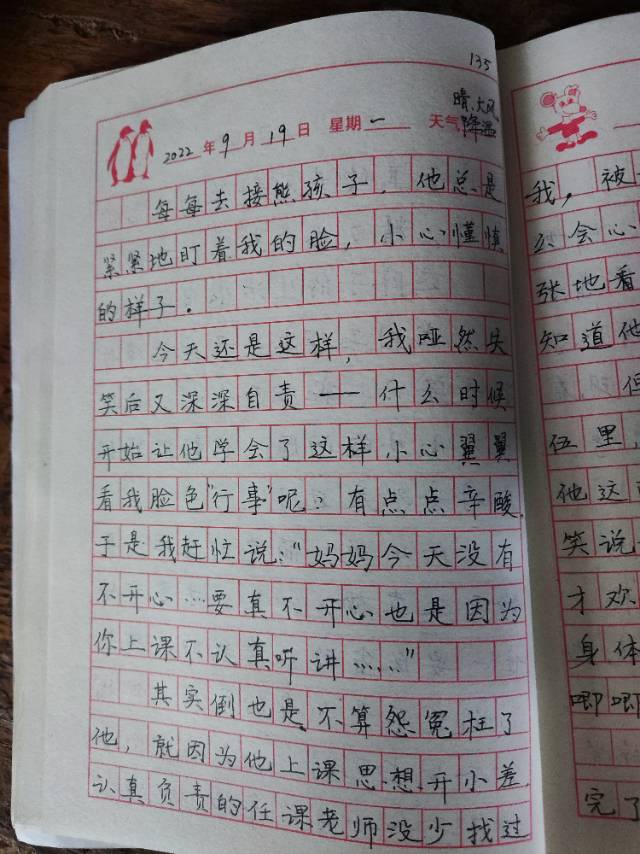 135
2022年9月19日 星期一 天气 晴.大风
降温
每每去接熊孩子，他总是
紧紧地盯着我的脸，小心懂慎
的样子.
今天还是这样，我哑然失
笑后又深深自责——什么时候
开始让他学会了这样小心翼翼
看我脸色"行事"呢？有点点辛酸.
于是我赶忙说："妈妈今天没有
不开心……要真不开心也是因为
你上课不认真听讲……"
其实倒也是不算怨冤枉了
他，就因为他上课思想开小差.
认真负责的任课老师没少找过
我，被
么会心
张地看
知道他
但
伍里，
他这
笑说
才欢
身体
唧唧
完了